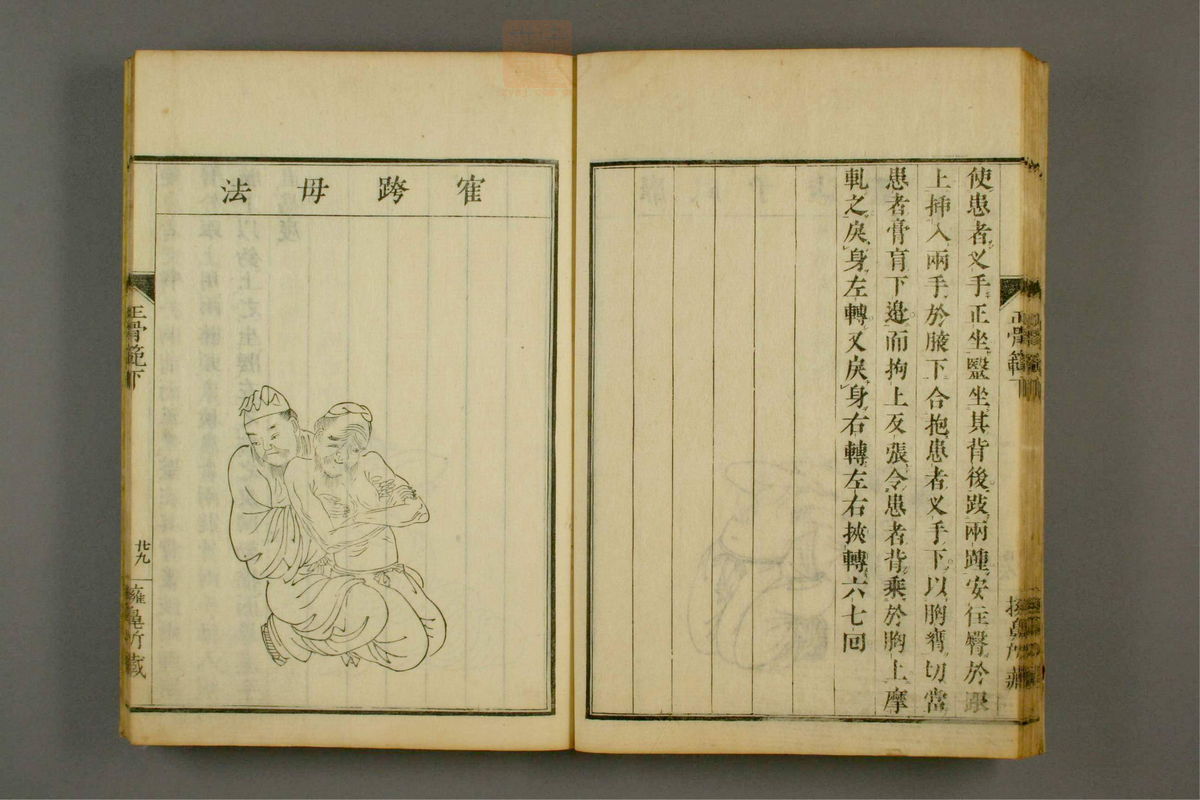 使患者叉手正坐毉坐其背後跂兩踵安住臀於跟
上揷入兩手於腋下合抱患者叉手下以胸膺切當
患者膏肓下邉而拘上反張令患者背乗於胸上摩
軋之戾身左轉又戾身右轉左右挾轉六七回
正骨範下
寉跨毋法
正骨範下
廿九